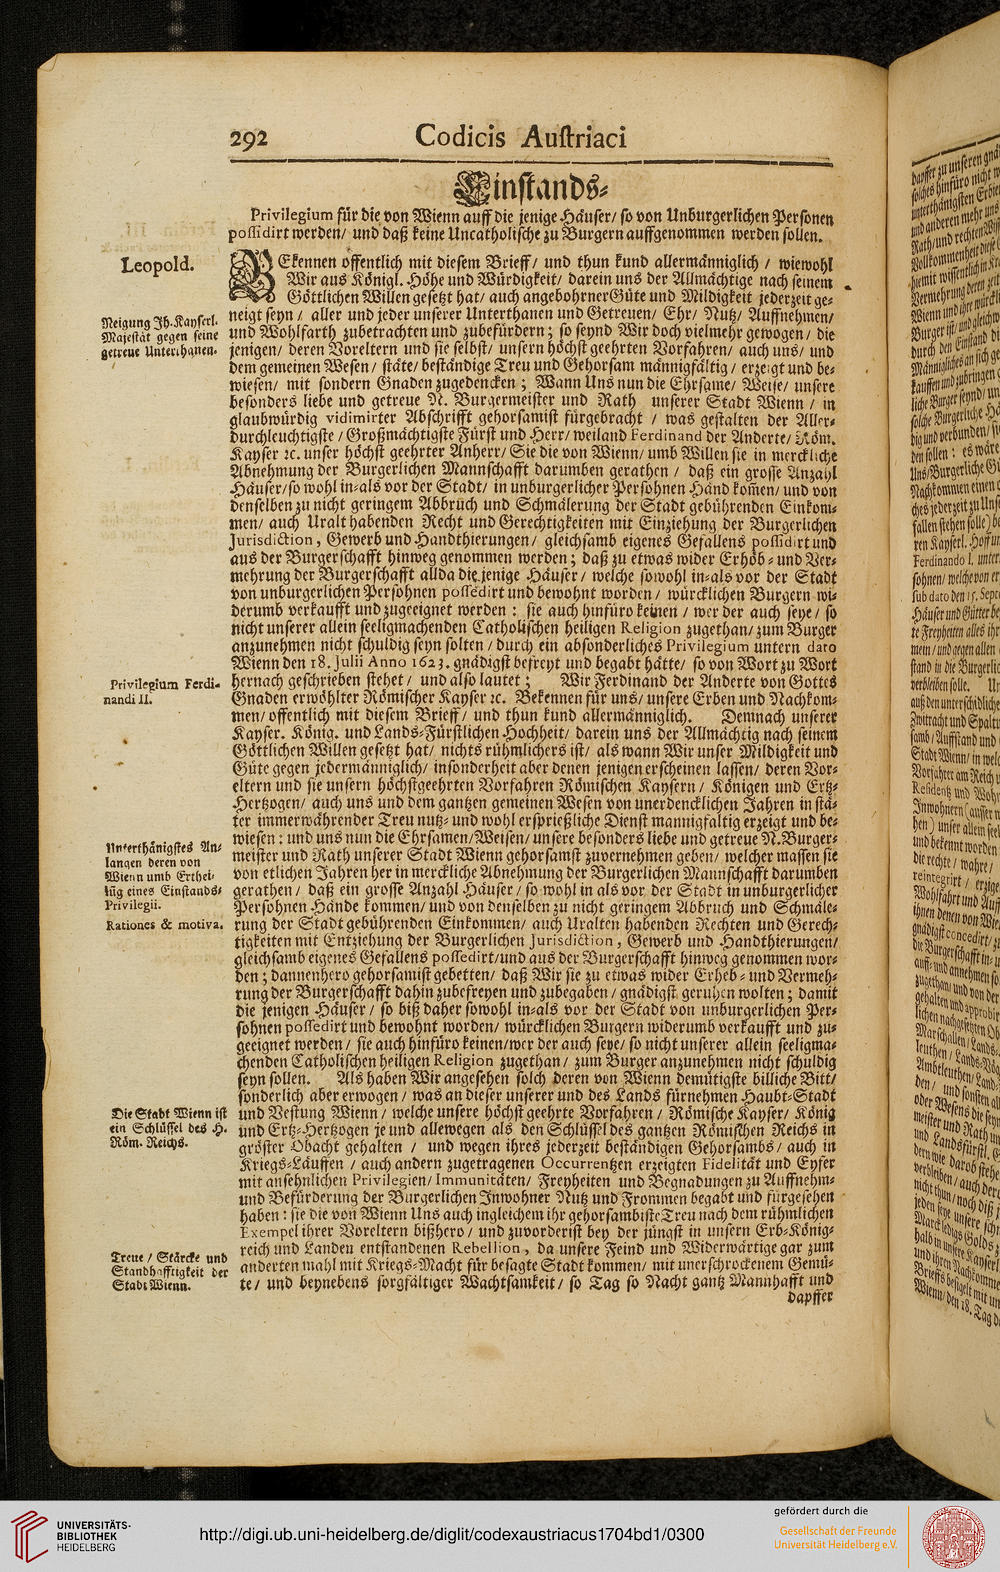 292 Codicis Austriaci
Einstands-
Privilegium für die von Wienn auff die jenige Häuser/ so von Unburgerlichen Personen
possidirt werden/ und daß keine Uncatholische zu Burgern auffgenommen werden sollen.
Leopold.
BEkennen offentlich mit diesem Brieff/ und thun kund allermänniglich / wiewohl
Wir aus Königl. Höhe und Würdigkeit/ darein uns der Allmächtige nach seinem
Göttlichen Willen gesetzt hat/ auch angebohrner Güte und Mildigkeit jederzeit ge-
Neigung Ih. Kayserl.
Majestät gegen seine
getreue Unterthanen.
neigt seyn / aller und jeder unserer Unterthanen und Getreuen/ Ehr/ Nutz/ Auffnehmen/
und Wohlfarth zubetrachten und zubefürdern; so seynd Wir doch vielmehr gewogen / die
jenigen/ deren Voreltern und sie selbst/ unsern höchst geehrten Vorfahren/ auch uns/ und
dem gemeinen Wesen / stäte/ beständige Treu und Gehorsam männigfältig / erzeigt und be-
wiesen/ mit sondern Gnaden zugedencken ; Wann Uns nun die Ehrsame/ Weise/ unsere
besonders liebe und getreue N. Burgermeister und Rath unserer Stadt Wienn / in
glaubwürdig vidimirter Abschrifft gehorsamist fürgebracht / was gestalten der Aller-
durchleuchtigste / Großmächtigste Fürst und Herr/ weiland Ferdinand der Anderte/ Röm.
Kayser ꝛc. unser höchst geehrter Anherr/ Sie die von Wienn/ umb Willen sie in merckliche
Abnehmung der Burgerlichen Mannschafft darumben gerathen / daß ein grosse Anzahl
Häuser/so wohl in-als vor der Stadt/ in unburgerlicher Persohnen Händ kom̃en/ und von
denselben zu nicht geringem Abbrüch und Schmälerung der Stadt gebührenden Einkom-
men/ auch Uralt habenden Recht und Gerechtigkeiten mit Einziehung der Burgerlichen
Jurisdiction, Gewerb und Handthierungen/ gleichsamb eigenes Gefallens possidirt und
aus der Burgerschafft hinweg genommen werden; daß zu etwas wider Erhöb- und Ver-
mehrung der Burgerschafft allda die jenige Häuser / welche sowohl in-als vor der Stadt
von unburgerlichen Persohnen possedirt und bewohnt worden/ würcklichen Burgern wi-
derumb verkaufft und zugeeignet werden : sie auch hinfüro keinen / wer der auch seye/ so
nicht unserer allein seeligmachenden Catholischen heiligen Religion zugethan/ zum Burger
anzunehmen nicht schuldig seyn solten / durch ein absonderliches Privilegium untern dato
Wienn den 18. Julii Anno 1623. gnädigst befreyt und begabt hätte/ so von Wort zu Wort
Privilegium Ferdi-
nandi II.
hernach geschrieben stehet / und also lautet ; Wir Ferdinand der Anderte von Gottes
Gnaden erwöhlter Römischer Kayser ꝛc. Bekennen für uns/ unsere Erben und Nachkom-
men/ offentlich mit diesem Brieff/ und thun kund allermänniglich. Demnach unserer
Kayser. König. und Lands-Fürstlichen Hochheit/ darein uns der Allmächtig nach seinem
Göttlichen Willen gesetzt hat/ nichts rühmlichers ist/ als wann Wir unser Mildigkeit und
Güte gegen jedermänniglich/ insonderheit aber denen jenigen erscheinen lassen/ deren Vor-
eltern und sie unsern höchstgeehrten Vorfahren Römischen Kaysern/ Königen und Ertz-
Hertzogen/ auch uns und dem gantzen gemeinen Wesen von unerdencklichen Jahren in stä-
ter immerwährender Treu nutz- und wohl ersprießliche Dienst mannigfaltig erzeigt und be-
wiesen: und uns nun die Ehrsamen/Weisen/ unsere besonders liebe und getreue N.Burger-
Unterthänigstes An-
langen deren von
Wienn umb Erthei-
lũg eines Einstands-
Privilegii.
meister und Rath unserer Stadt Wienn gehorsamst zuvernehmen geben/ welcher massen sie
von etlichen Jahren her in merckliche Abnehmung der Burgerlichen Mannschafft darumben
gerathen / daß ein grosse Anzahl Häuser / so wohl in als vor der Stadt in unburgerlicher
Persohnen Hände kommen/ und von denselben zu nicht geringem Abbruch und Schmäle-
Rationes & motiva.
rung der Stadt gebührenden Einkommen/ auch Uralten habenden Rechten und Gerech-
tigkeiten mit Entziehung der Burgerlichen Jurisdiction, Gewerb und Handthierungen/
gleichsamb eigenes Gefallens possedirt/und aus der Burgerschafft hinweg genommen wor-
den; dannenhero gehorsamist gebetten/ daß Wir sie zu etwas wider Erheb- und Vermeh-
rung der Burgerschafft dahin zubefreyen und zubegaben / gnädigst geruhen wolten; damit
die jenigen Häuser / so biß daher sowohl in-als vor der Stadt von unburgerlichen Per-
sohnen possedirt und bewohnt worden/ würcklichen Burgern widerumb verkaufft und zu-
geeignet werden / sie auch hinfüro keinen/wer der auch seye/ so nicht unserer allein seeligma-
chenden Catholischen heiligen Religion zugethan / zum Burger anzunehmen nicht schuldig
seyn sollen. Als haben Wir angesehen solch deren von Wienn demütigste billiche Bitt/
sonderlich aber erwogen / was an dieser unserer und des Lands fürnehmen Haubt-Stadt
Die Stadt Wienn ist
ein Schlüssel des H.
Röm. Reichs.
und Vestung Wienn / welche unsere höchst geehrte Vorfahren / Römische Kayser/ König
und Ertz-Hertzogen je und allewegen als den Schlüssel des gantzen Römischen Reichs in
gröster Obacht gehalten / und wegen ihres jederzeit beständigen Gehorsambs/ auch in
Kriegs-Läuffen / auch andern zugetragenen Occurrentzen erzeigten Fidelität und Eyfer
mit ansehnlichen Privilegien/ Immunitäten/ Freyheiten und Begnadungen zu Auffnehm-
und Befürderung der Burgerlichen Inwohner Nutz und Frommen begabt und fürgesehen
haben: sie die von Wienn Uns auch ingleichem ihr gehorsambiste Treu nach dem rühmlichen
Exempel ihrer Voreltern bißhero/ und zuvorderist bey der jüngst in unsern Erb-König-
reich und Landen entstandenen Rebellion, da unsere Feind und Widerwärtige gar zum
Treue / Stärcke und
Standhafftigkeit der
Stadt Wienn.
anderten mahl mit Kriegs-Macht für besagte Stadt kommen/ mit unerschrockenem Gemü-
te/ und beynebens sorgfältiger Wachtsamkeit/ so Tag so Nacht gantz Mannhafft und
dapffer
UNIVERSITÄTS-
BIBLIOTHEK
HEIDELBERG
http://digi.ub.uni-heidelberg.de/diglit/codexaustriacus1704bd1/0300
gefördert durch die
Gesellschaft der Freunde
Universität Heidelberg e.V.